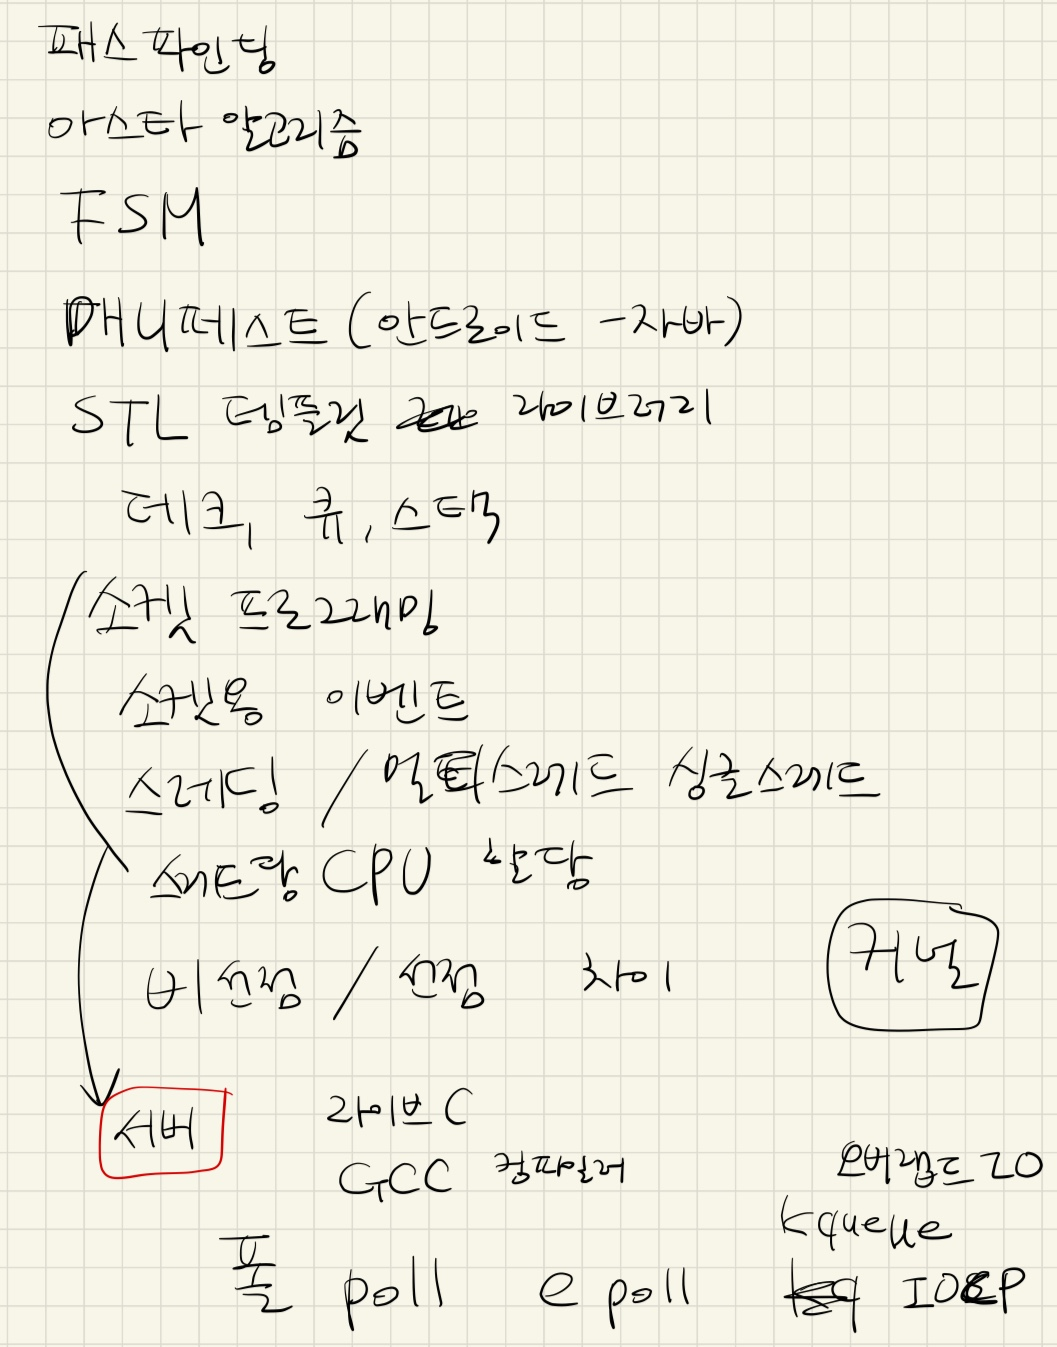 패스파인딩
아스타 알고리즘
FSM
매니페스트 (안드로이드 - 자바)
STL 템플릿 라이브러리
데크, 큐, 스택
소켓 프로그래밍
소켓용 이벤트
스레딩 / 멀티스레드 싱글스레드
스레드랑 CPU 할당
비선점 / 선점 차이
커널
서버
라이브 C
GCC 컴파일러
오버랩드 IO
Kqueue
폴 poll e poll IOCP